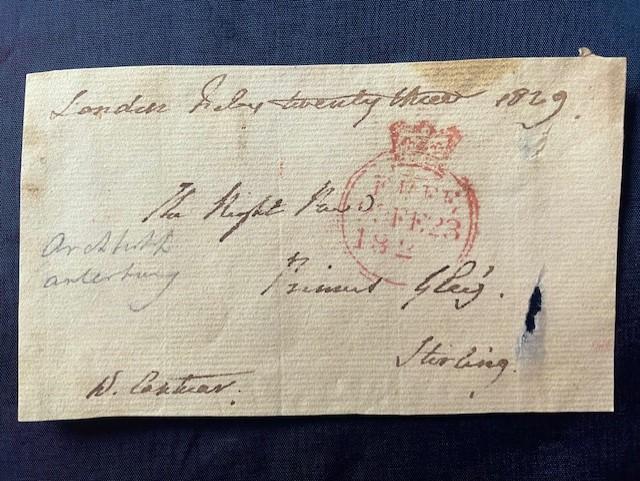 London Feby twenty three 1829.
FREE
FE23
182
The Right Revd
Archbish
anterbury
Primus Gleig.
Stirling.
W. Cantuar.